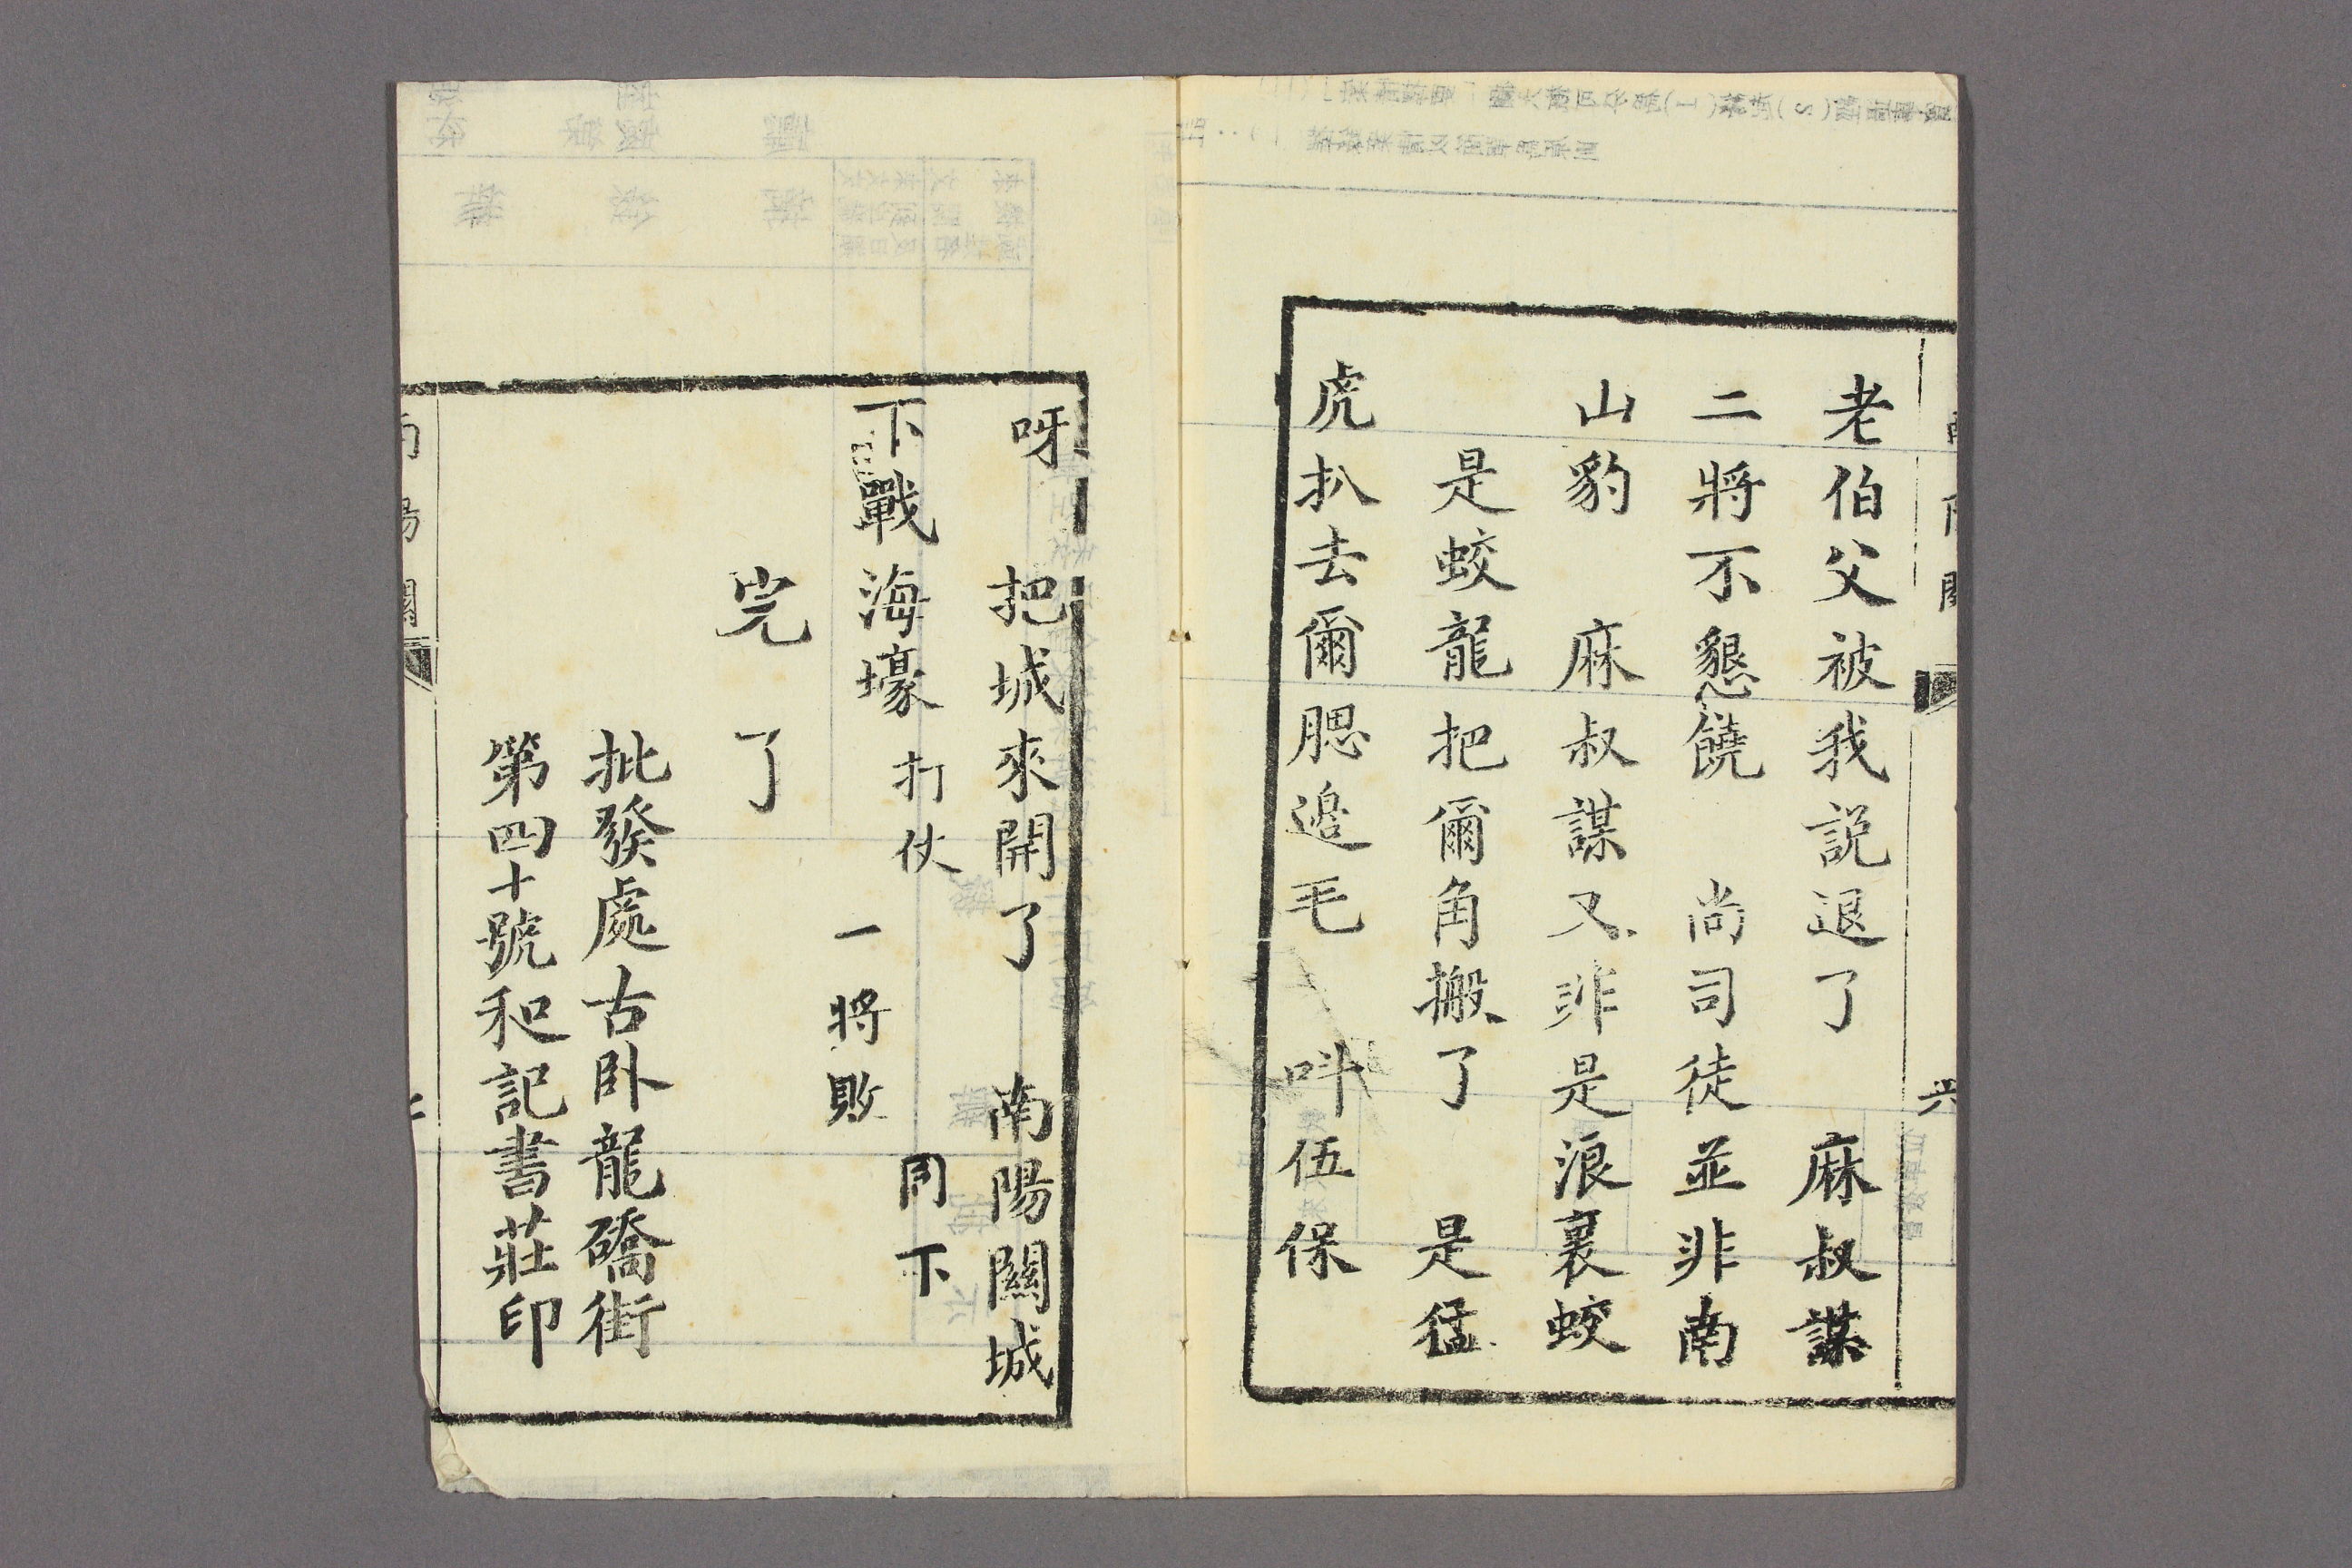 老伯父被我説退了　麻叔謀
二將不懇饒　尚司徒並非南
山豹　麻叔謀又非是浪裏蛟
是蛟龍把爾角搬了　是猛
虎扒去爾腮邉毛　吽伍保
呀　把城來開了　南陽關城
下戰海壕　打仗　同下
一將敗
完了
批發處古卧龍礄街
第四十號和記書莊印